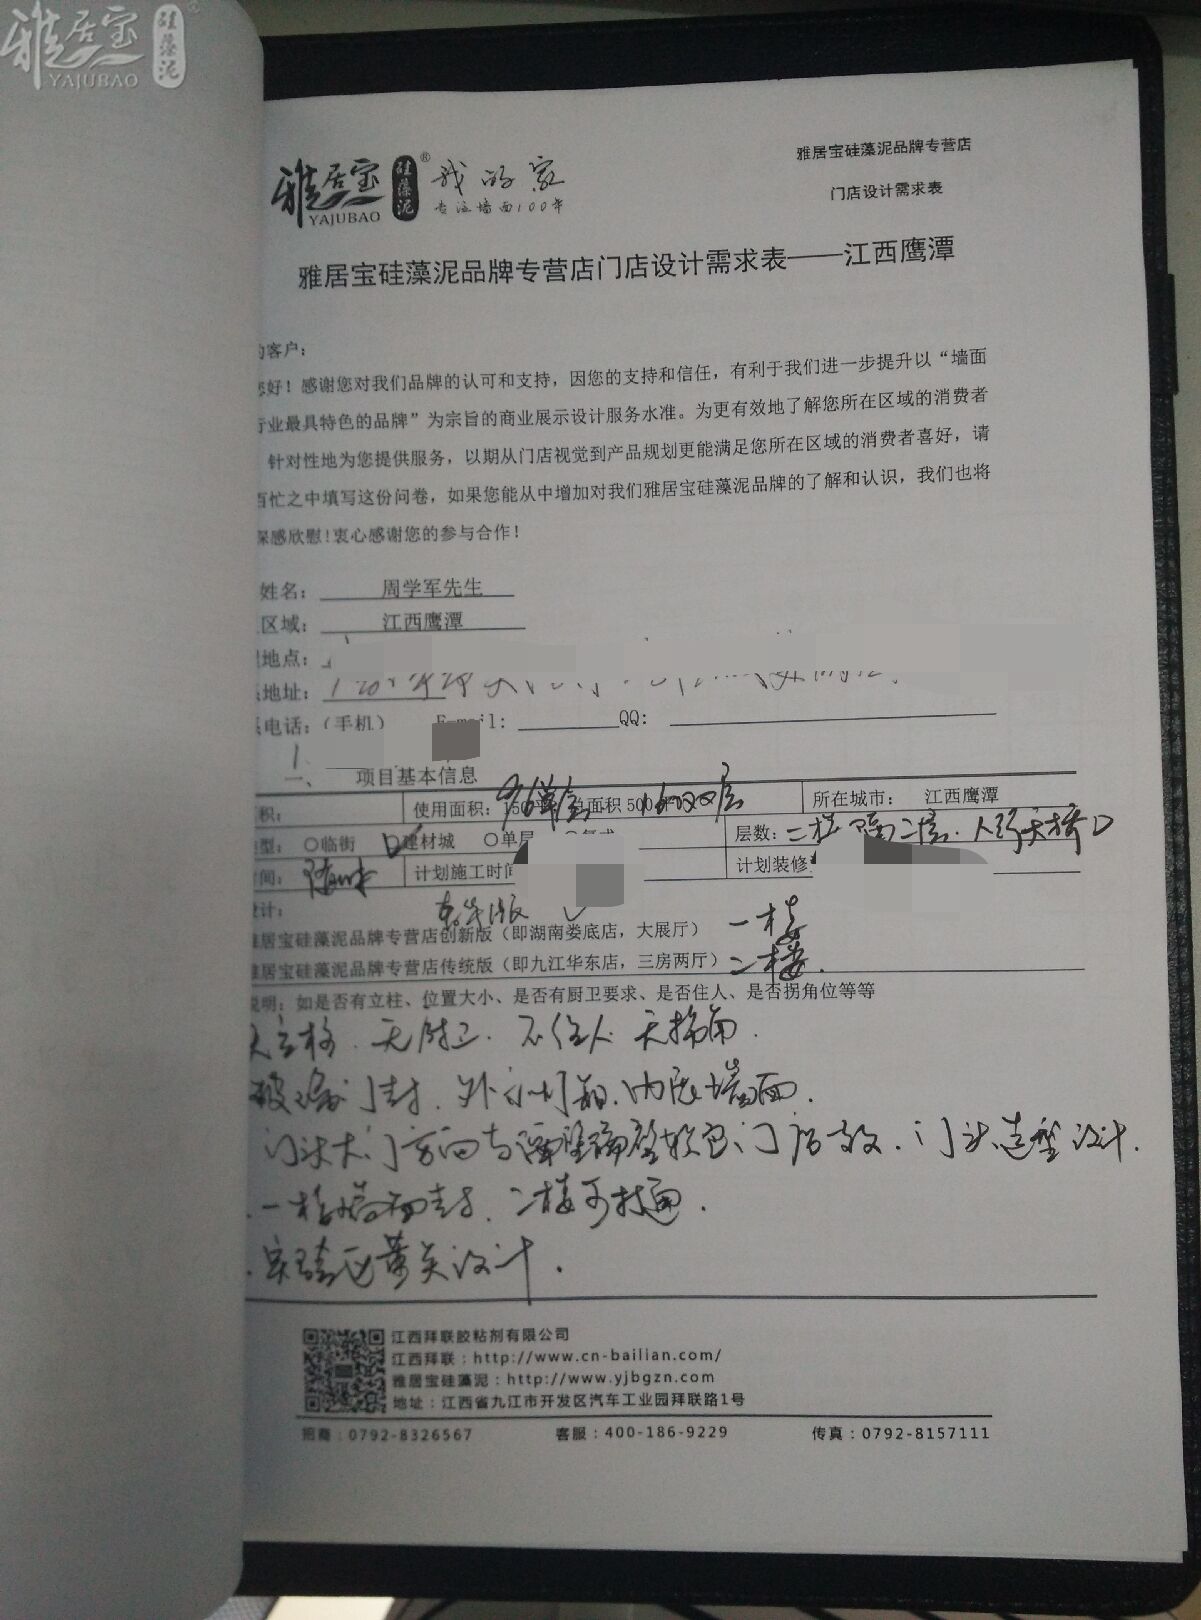 雅居宝 硅藻泥 ®
YAJUBAO
雅居宝 硅藻泥 ® 我的家
YAJUBAO 专注墙面100年
雅居宝硅藻泥品牌专营店
门店设计需求表
雅居宝硅藻泥品牌专营店门店设计需求表——江西鹰潭
的客户：
您好！感谢您对我们品牌的认可和支持，因您的支持和信任，有利于我们进一步提升以“墙面
行业最具特色的品牌”为宗旨的商业展示设计服务水准。为更有效地了解您所在区域的消费者
针对性地为您提供服务，以期从门店视觉到产品规划更能满足您所在区域的消费者喜好，请
百忙之中填写这份问卷，如果您能从中增加对我们雅居宝硅藻泥品牌的了解和认识，我们也将
深感欣慰！衷心感谢您的参与合作！
姓名： 周学军先生
区域： 江西鹰潭
地点：
地址：
电话：（手机） E-mail: QQ:
一、 项目基本信息
积： 使用面积：150 总面积500 双层 所在城市： 江西鹰潭
型： ○临街 建材城 ○单层 层数：二楼 二层．人行天桥口
间： 计划施工时间 计划装修
设计： 版 ✓
雅居宝硅藻泥品牌专营店创新版（即湖南娄底店，大展厅） 一楼
雅居宝硅藻泥品牌专营店传统版（即九江华东店，三房两厅） 二楼．
说明：如是否有立柱、位置大小、是否有厨卫要求、是否住人、是否拐角位等等
无立柱．无厨卫．不住人 无拐角．
玻璃门封．外 灯箱．内 墙面．
门头大门方向与 门店 ．门头造型设计．
一楼 ．二楼可打通．
． 区 设计．
江西拜联胶粘剂有限公司
江西拜联：http://www.cn-bailian.com/
雅居宝硅藻泥：http://www.yjbgzn.com
地址：江西省九江市开发区汽车工业园拜联路1号
招商：0792-8326567 客服：400-186-9229 传真：0792-8157111